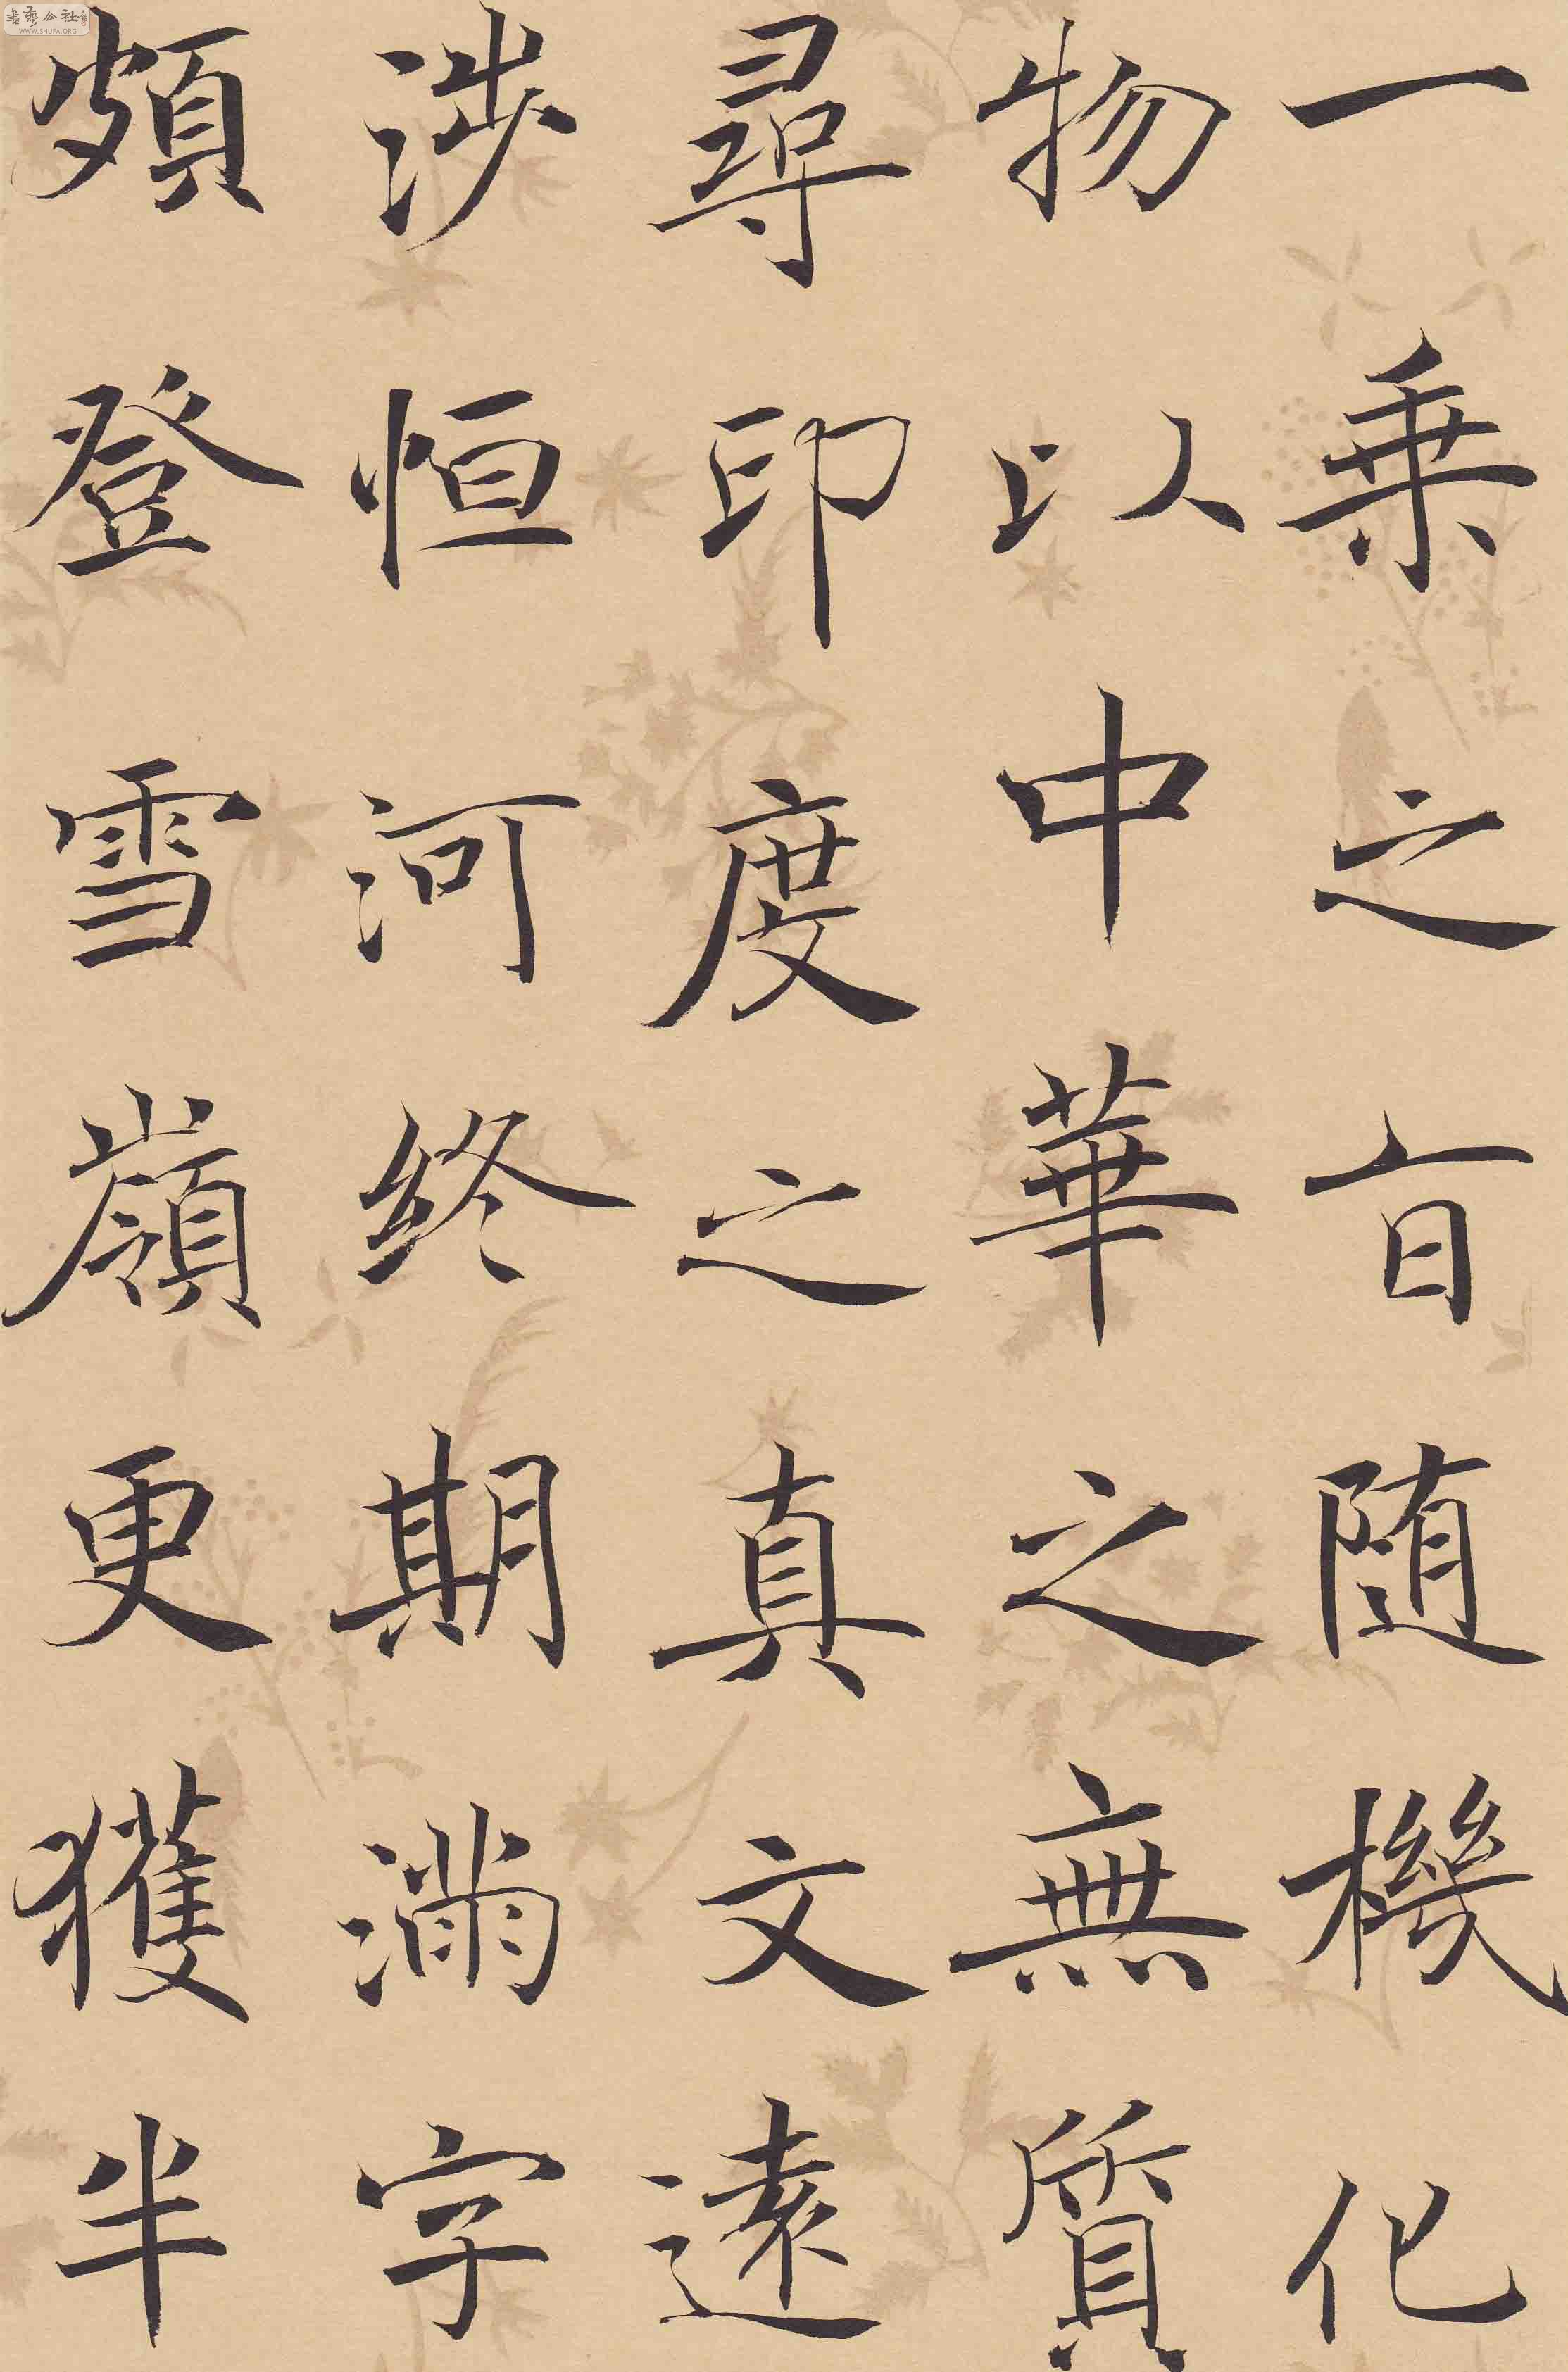 一乗之旨随機化
物以中華之無質
尋印度之真文遠
涉恒河終期滿字
頻登雪嶺更獲半
書藝公社
WWW.SHUFA.ORG